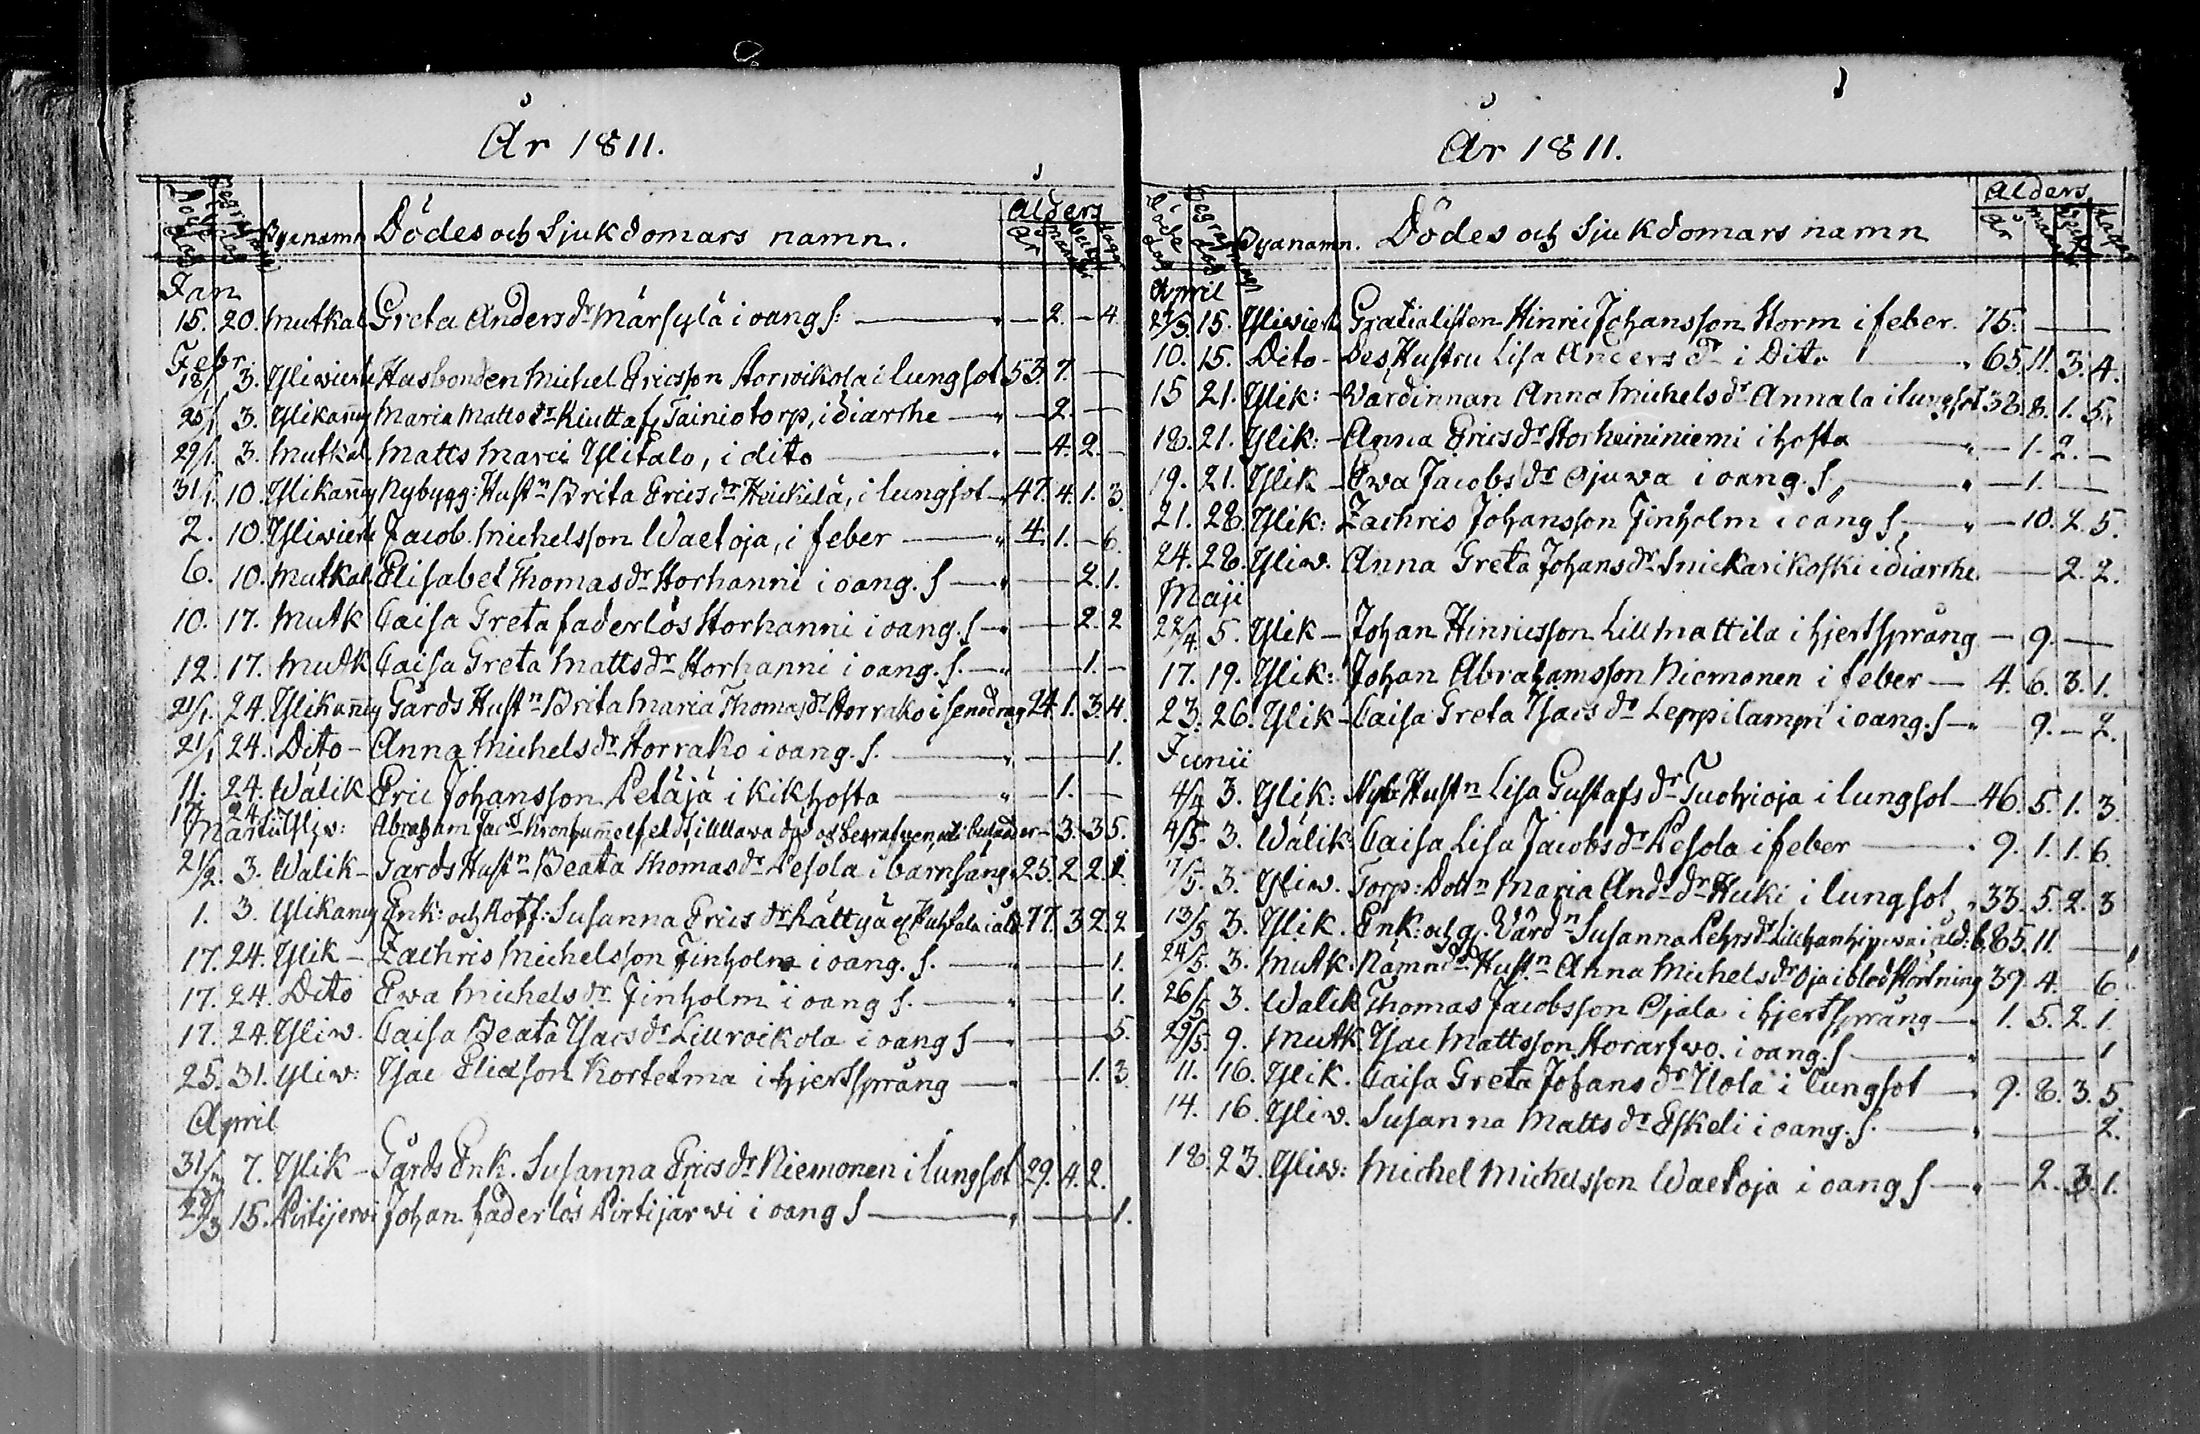 År 1811.
Döde dag Begrafnings dag Byanamn Dödes och Sjukdomars namn. Ålders
År månad Wekor dagar
Jan
15. 20. Mutkal Greta Andersdr Märsylä i oang s: — 2. — 4.
Febr.
18/1 3. Yliviesk Husbonden Michel Ericsson Storwikola i lungsot 53. 7. —
25/1 3. Ylikanng Maria Mattsdr Kiutta fr Tainio torp, i diarrhe — 2. —
29/1. 3. Mutkal Matts Marci Ylitalo, i dito — 4. 2. —
31/1. 10. Ylikanng Nybygg: Hustn Brita Ericsdr Heickilä, i lungsot 47. 4. 1. 3.
2. 10. Yliviesk Jacob Michelsson Waetoja, i feber 4. 1. — 6.
6. 10. Mutkal Elisabet Thomasdr Storhanni i oang. s — 2. 1.
10. 17. Mutk Caisa Greta faderlös Storhanni i oang. s — 2. 2
12. 17. Mutk Caisa Greta Mattsdr Storhanni i oang. s. — 1. —
21/1. 24. Ylikanng Gårds Hustn Brita Maria Thomasdr Storrako i senedrag 24. 1. 3. 4.
21/1 24. Dito - Anna Michelsdr Storrako i oang. s. — 1.
11. 24. Wälik Eric Johansson Petäjä i kikhosta — 1. —
17. 24. Yliv: Abraham Jacss Kronhummelfeldt, — 3. 3 5.
Martii
21/2. 3. Wälik - Gårds Hustn Beata Thomasdr Pesola i barnsäng 25. 2 2. 1.
1. 3. Ylikanng Enk: och Rotf: Susanna Ericsdr Rättyä 77. 3 2. 2
17. 24. Ylik - Zachris Michelsson Finholm i oang. s. — 1.
17. 24. Dito Ewa Michelsdr Finholm i oang s. — 1.
17. 24. Yliv. Caisa Beata Isacsdr Lillroikola i oang s — 5.
25. 31. Yliv: Isac Eliasson Kortetma i hjertsprång — 1. 3.
April
31/3 7. Ylik - Gårds Enk. Susanna Ericsdr Niemonen i lungsot 29. 4. 2.
29/3 15. Pirtijervi Johan faderlös Pirtijärwi i oang s — 1.
År 1811.
Döde dag Begrafnings dag Byanamn. Dödes och Sjukdomars namn Ålders
År månad Wekor dagar
April
27/3. 15. Yliviesk Gratialisten Hinric Johansson Storm i feber. 75. —
10. 15. Dito - Des Hustru Lisa Andersdr i Dito 65. 11. 3. 4.
15 21. Ylik: - Wärdinnan Anna Michelsdr Annala i lungsot 38. 8. 1. 5.
18. 21. Ylik: - Anna Ericsdr Storheininiemi i hosta — 1. 2. —
19. 21. Ylik - Ewa Jacobsdr Ojuwa i oang. s — 1. —
21. 28. Ylik: Zachris Johansson Finholm i oang s — 10. 2. 5.
24. 28. Yliv. Anna Greta Johansdr Snickarikoski i diarrhe — 2. 2.
Maji
28/4. 5. Ylik - Johan Hinricsson Lillmattila i hjertsprång — 9. —
17. 19. Ylik: Johan Abrahamsson Niemonen i feber — 4. 6. 3. 1.
23. 26. Ylik - Caisa Greta Isacsdr Leppilampi i oang. s — 9. — 2.
Junii
4/4 3. Ylik: Nyb Hustn Lisa Gustafsdr Tuohioja i lungsot — 46. 5. 1. 3.
4/5. 3. Wälik: Caisa Lisa Jacobsdr Pesola i feber 9. 1. 1. 6.
7/5. 3. Yliv. Torp: Dottn Maria Andsdr Huki i lungsot 33. 5. 2. 3
13/5 3. Ylik. Enk: och g. Wärdn Susanna Pehrsdr 85. 11. —
24/5. 3. Mutk: Nämndn Hustn Anna Michelsdr Oja i blodstörtning 39. 4. — 6.
26/5 3. Wälik Thomas Jacobsson Ojala i hjertsprång — 1. 5. 2. 1.
29/5. 9. Mutk Isac Mattsson Storarfwo. i oang. s — 1
11. 16. Ylik. Caisa Greta Johansdr Uola i lungsot — 9. 8. 3. 5.
14. 16. Yliv. Susanna Mattsdr Eskeli i oang. s. — 2.
18. 23. Yliv: Michel Michelsson Waetoja i oang s — 2. 3. 1.